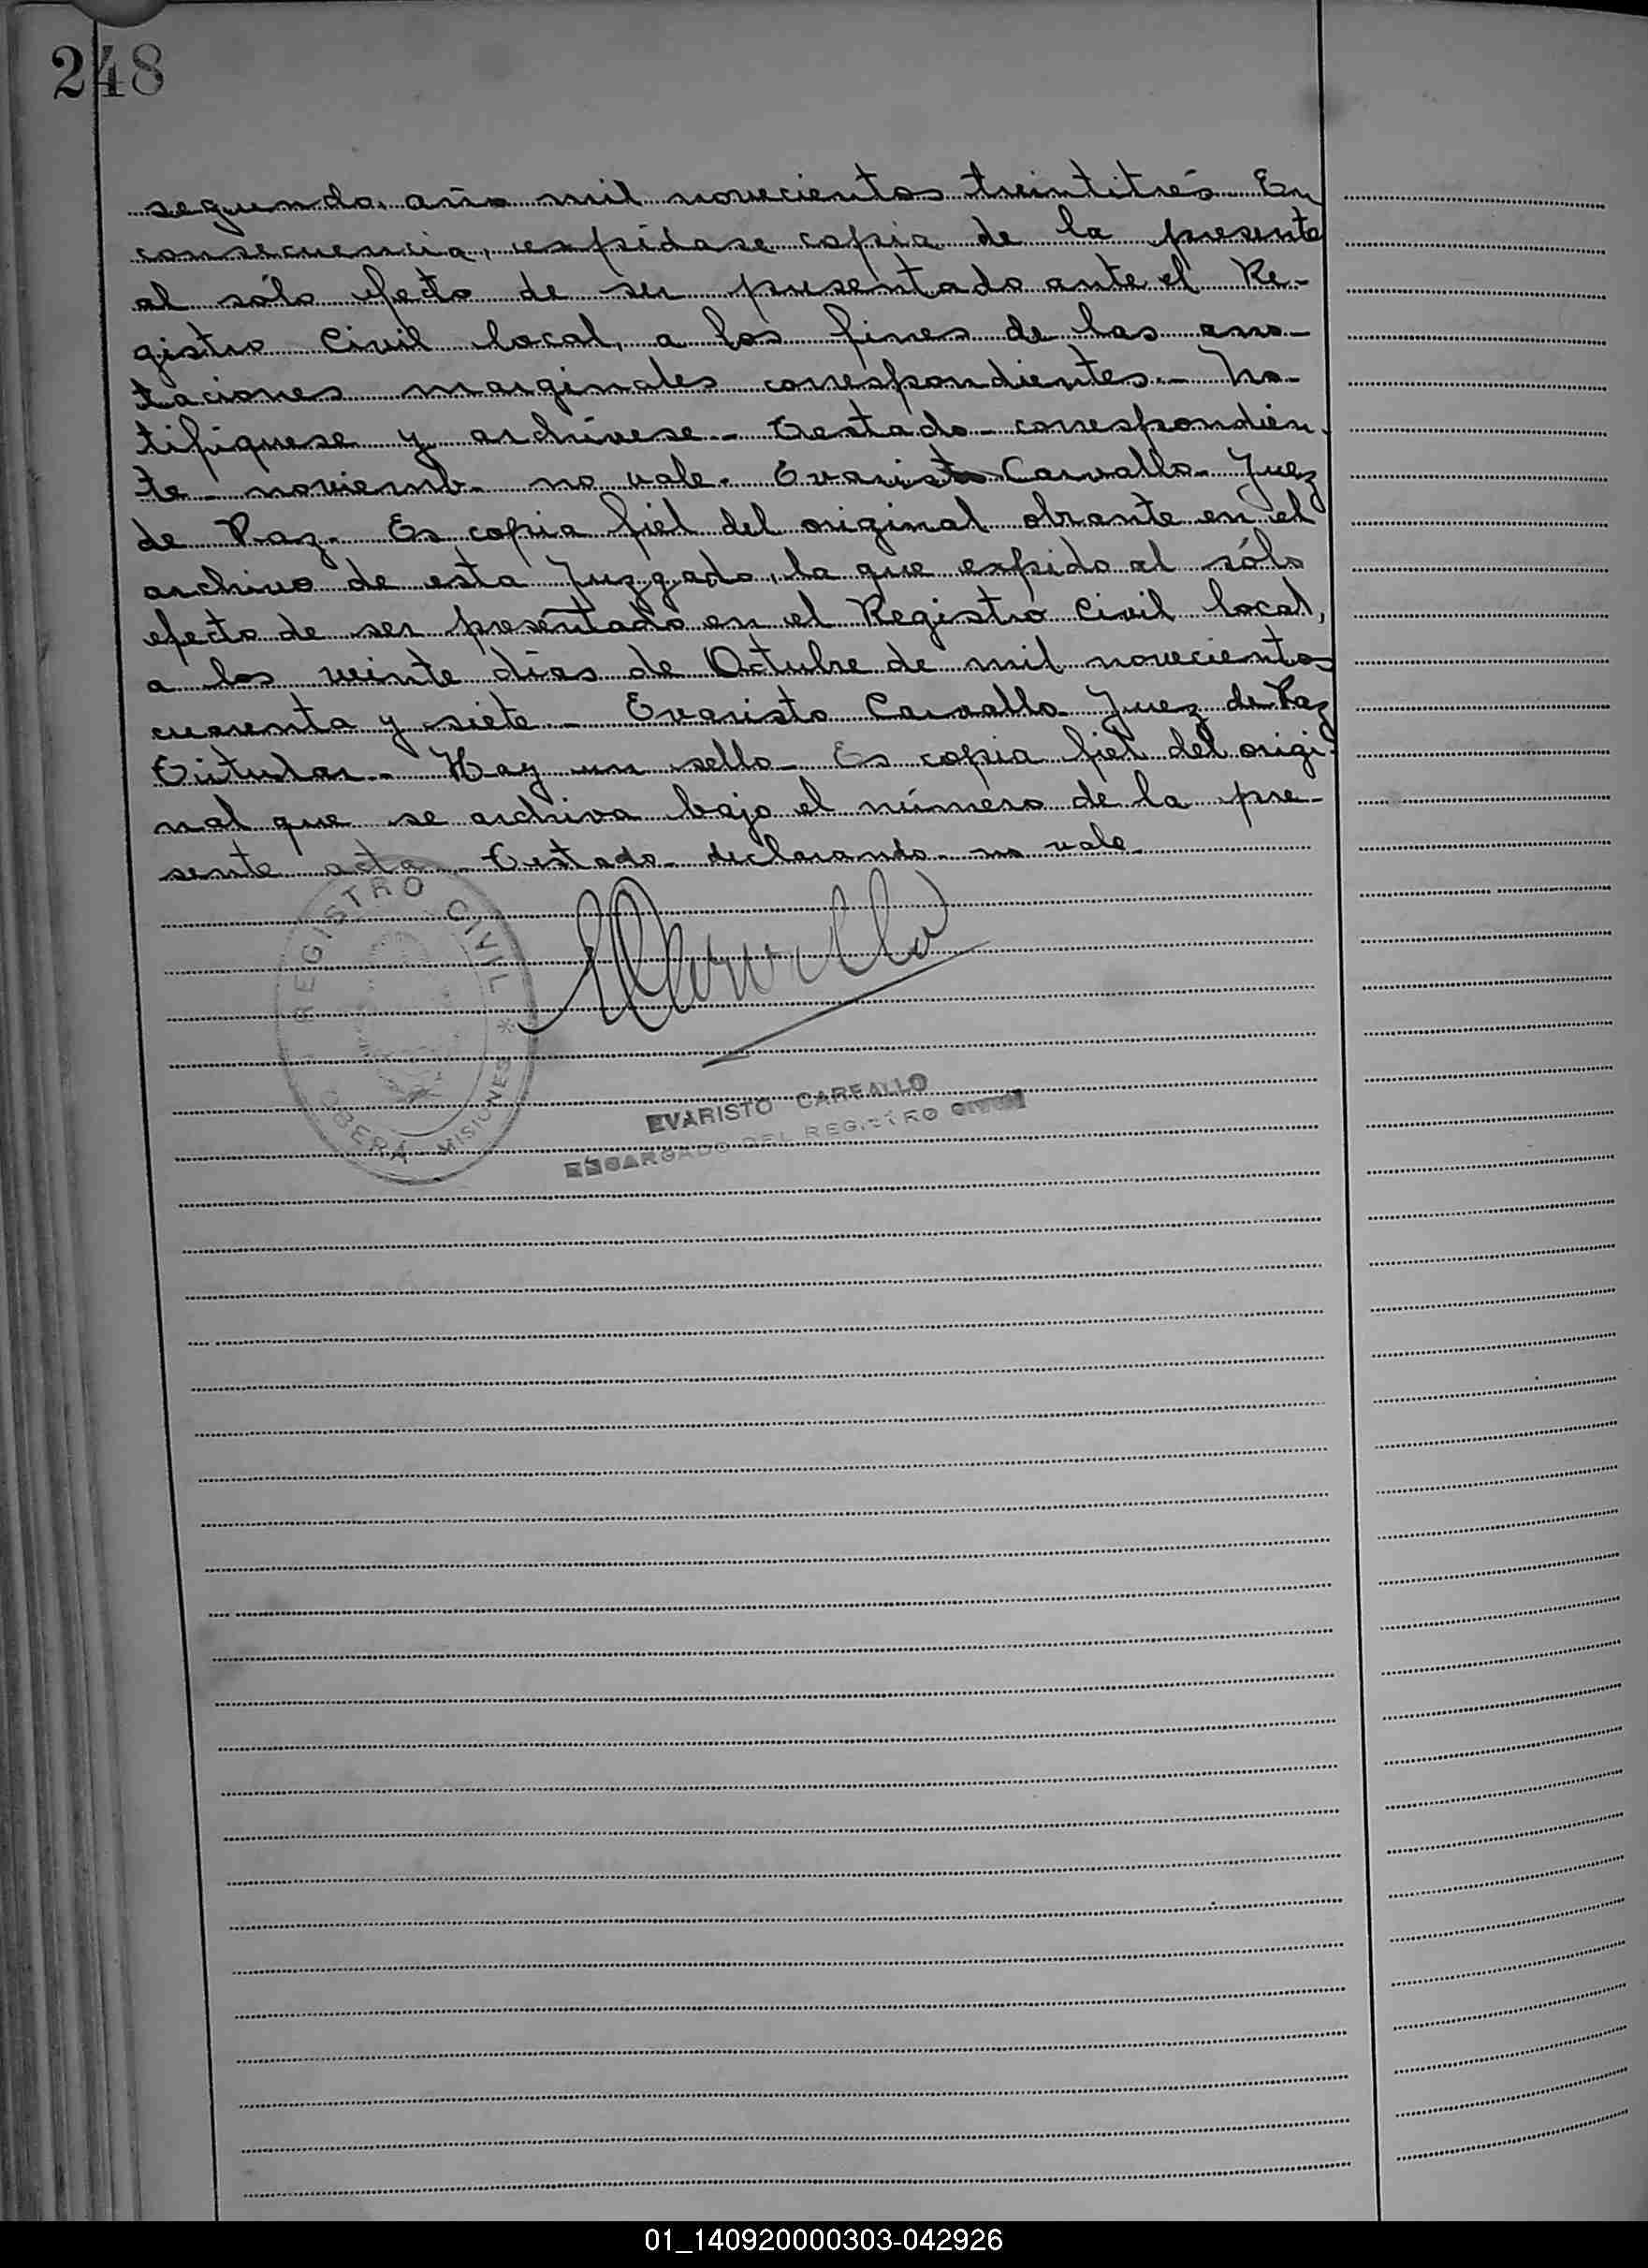 248
segundo, año mil novecientos treintitrés. En
consecuencia, expídase copia de la presente
al sólo efecto de ser presentado ante el Re-
gistro Civil local, a los fines de las ano-
taciones marginales correspondientes.- No-
tifíquese y archívese.- Testado- correspondien-
te- noviemb- no vale. Evaristo Carvallo- Juez
de Paz.- Es copia fiel del original obrante en el
archivo de esta Juzgado, la que expido al sólo
efecto de ser presentado en el Registro Civil local,
a los veinte días de Octubre de mil novecientos
cuarenta y siete.- Evaristo Carvallo- Juez de Paz
Titular.- Hay un sello- Es copia fiel del origi-
nal que se archiva bajo el número de la pre-
sente acta- Testado- declarando- no vale-
REGISTRO CIVIL * OBERA - MISIONES
ECarvallo
EVARISTO CARVALLO
ENCARGADO DEL REGISTRO CIVIL
01_140920000303-042926